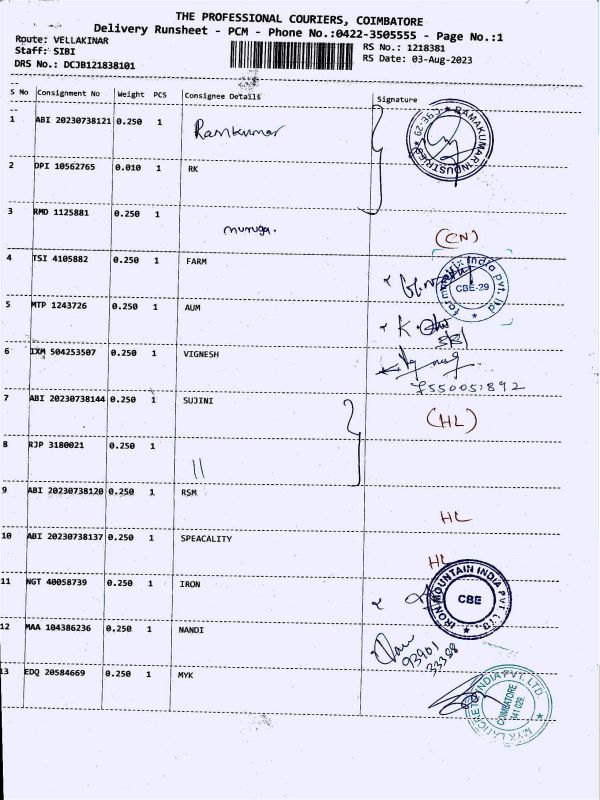 THE PROFESSIONAL COURIERS, COIMBATORE
Delivery Runsheet - PCM - Phone No.:0422-3505555 - Page No.:1
Route: VELLAKINAR
RS No.: 1218381
Staff: SIBI
RS Date: 03-Aug-2023
DRS No.: DCJB121838101
S No Consignment No Weight PCS Consignee Details Signature
1 ABI 20230738121 0.250 1 Ramkumar
RAMAKUMAR INDUSTRIES CBE-29
2 DPI 10562765 0.010 1 RK
3 RMD 1125881 0.250 1 muruga.
(CN)
4 TSI 4105882 0.250 1 FARM
India Pvt. Ltd CBE-29
5 MTP 1243726 0.250 1 AUM
K.
6 IXM 504253507 0.250 1 VIGNESH
7550051892
7 ABI 20230738144 0.250 1 SUJINI
(HL)
8 RJP 3180021 0.250 1 11
9 ABI 20230738120 0.250 1 RSM
HL
10 ABI 20230738137 0.250 1 SPEACALITY
HL
11 NGT 40058739 0.250 1 IRON
IRON MOUNTAIN INDIA PVT. LTD. CBE
12 MAA 104386236 0.250 1 NANDI
93901
33388
13 EDQ 20584669 0.250 1 MYK
MYK LATICRETE INDIA PVT. LTD. COIMBATORE 641 029.